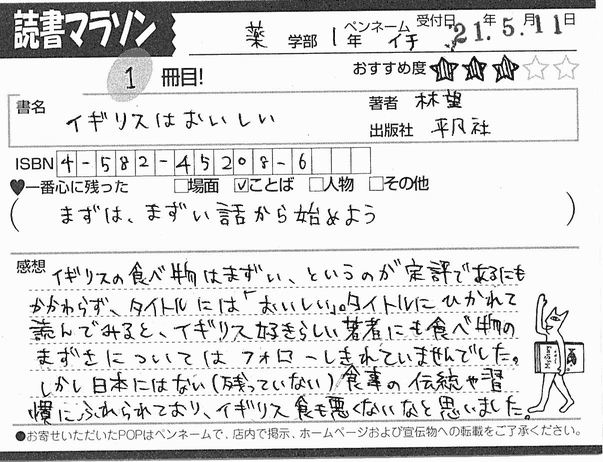 読書マラソン
薬 学部 1年 ペンネーム イチ 受付日 21.年5.月11日
1 冊目!
おすすめ度 ★★★☆☆
書名 イギリスはおいしい
著者 林望
出版社 平凡社
ISBN 4-582-45208-6
♥一番心に残った □場面 ☑ことば □人物 □その他
( まずは、まずい話から始めよう )
感想 イギリスの食べ物はまずい、というのが定評であるにも
かかわらず、タイトルには「おいしい」。タイトルにひかれて
読んでみると、イギリス好きらしい著者にも食べ物の
まずさについてはフォローしきれていませんでした。
しかし日本にはない(残っていない)食事の伝統や習
慣にふれられており、イギリス食も悪くないなと思いました。
●お寄せいただいたPOPはペンネームで、店内で掲示、ホームページおよび宣伝物への転載をご了承ください。